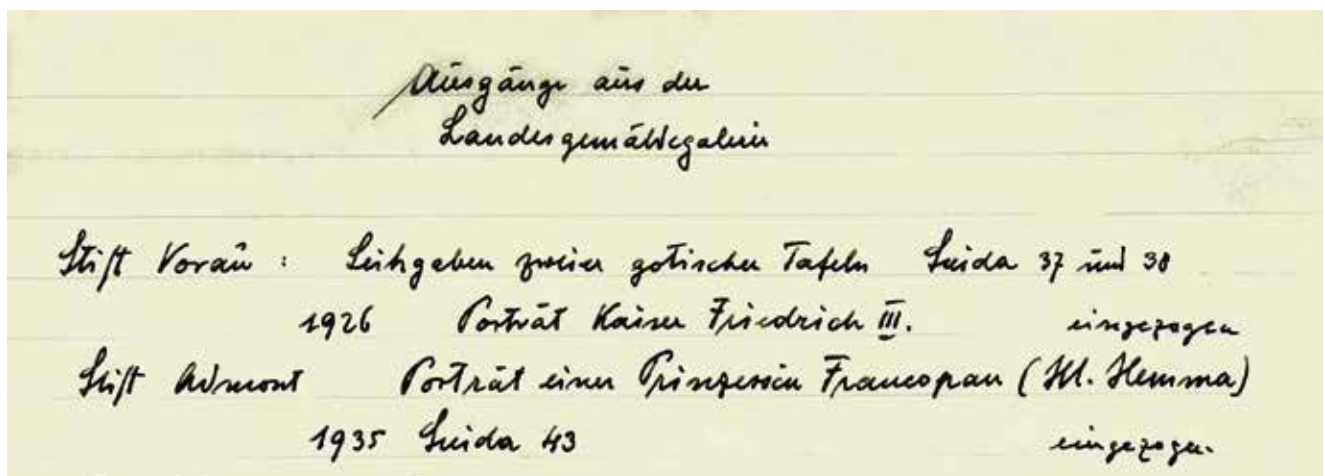 Ausgänge aus der
Landesgemäldegalerie
Stift Vorau : Leihgaben zweier gotischer Tafeln Suida 37 und 38
1926 Porträt Kaiser Friedrich III. eingezogen
Stift Admont Porträt einer Prinzessin Francopan (Hl. Hemma)
1935 Suida 43 eingezogen.